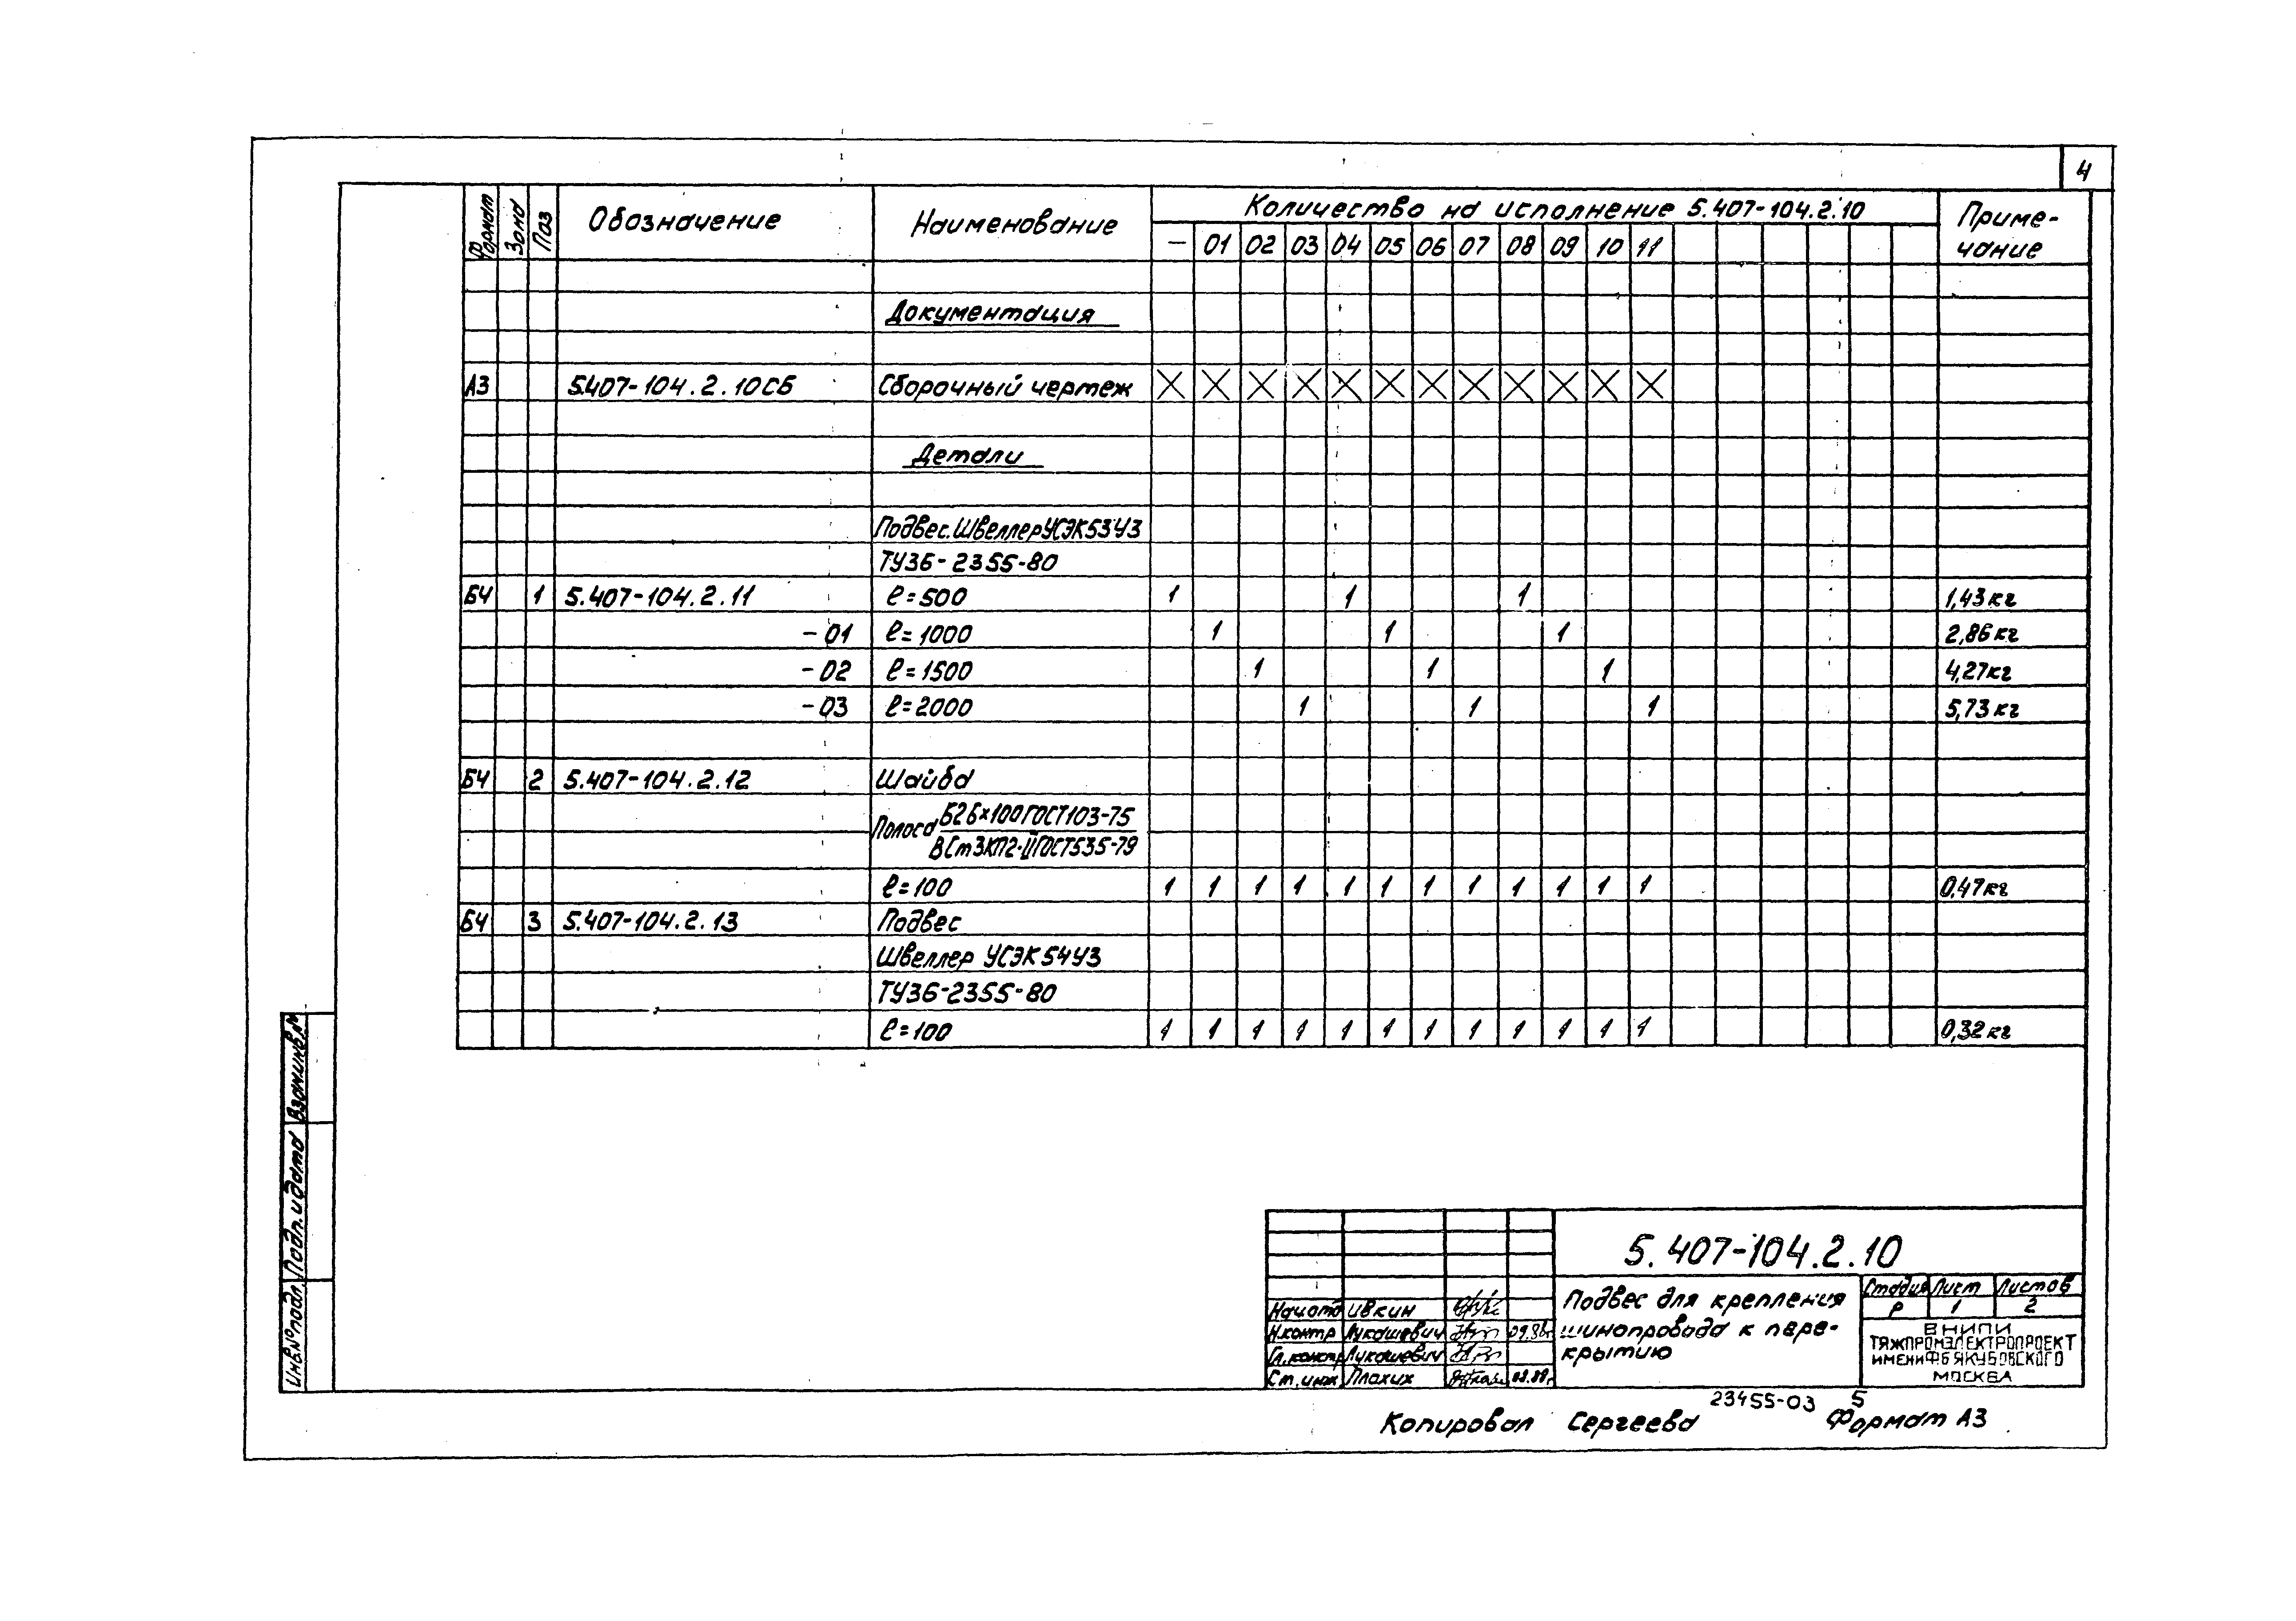 4
Формат Зона Поз Обозначение Наименование Количество на исполнение 5.407-104.2.10 Приме-
чание
– 01 02 03 04 05 06 07 08 09 10 11
Документация
А3 5.407-104.2.10СБ Сборочный чертеж X X X X X X X X X X X X
Детали
Подвес. Швеллер УСЭК53У3
ТУ36-2355-80
БЧ 1 5.407-104.2.11 ℓ=500 1 1 1 1,43кг
-01 ℓ=1000 1 1 1 2,86кг
-02 ℓ=1500 1 1 1 4,27кг
-03 ℓ=2000 1 1 1 5,73кг
БЧ 2 5.407-104.2.12 Шайба
Полоса Б2 6×100 ГОСТ103-75
ВСт3КП2-II ГОСТ535-79
ℓ=100 1 1 1 1 1 1 1 1 1 1 1 1 0,47кг
БЧ 3 5.407-104.2.13 Подвес
Швеллер УСЭК54У3
ТУ36-2355-80
ℓ=100 1 1 1 1 1 1 1 1 1 1 1 1 0,32кг
Взам.инв.№
Подп. и дата
Инв.№подл.
5.407-104.2.10
Подвес для крепления
шинопровода к пере-
крытию
Стадия Лист Листов
Р 1 2
ВНИПИ
ТЯЖПРОМЭЛЕКТРОПРОЕКТ
ИМЕНИ Ф Б ЯКУБОВСКОГО
МОСКВА
Нач.отд Ивкин
Н.контр Лукашевич
Гл.констр Лукашевич
Ст.инж Плахих
23455-03 5
Копировал Сергеева Формат А3